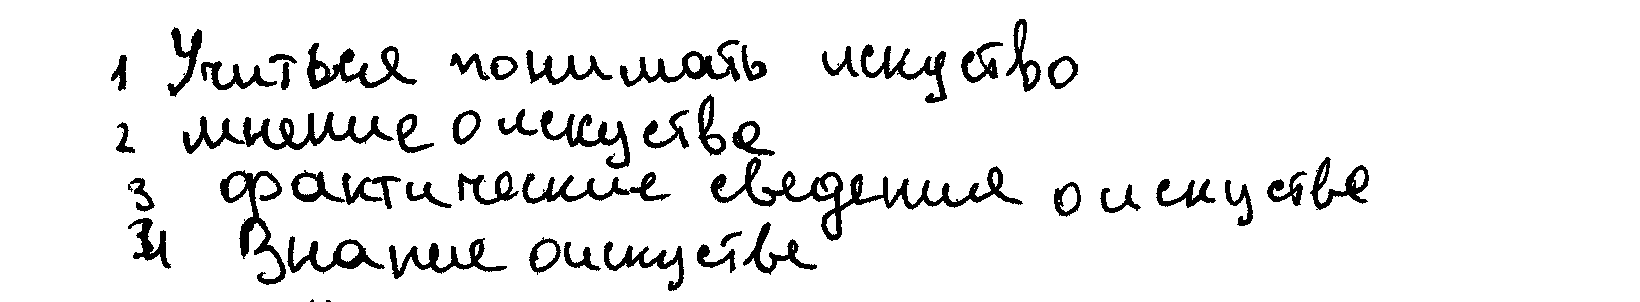 1 Учиться понимать искуство
2 мнение о искустве
3 фактические сведения о искустве
4 Знание о искустве